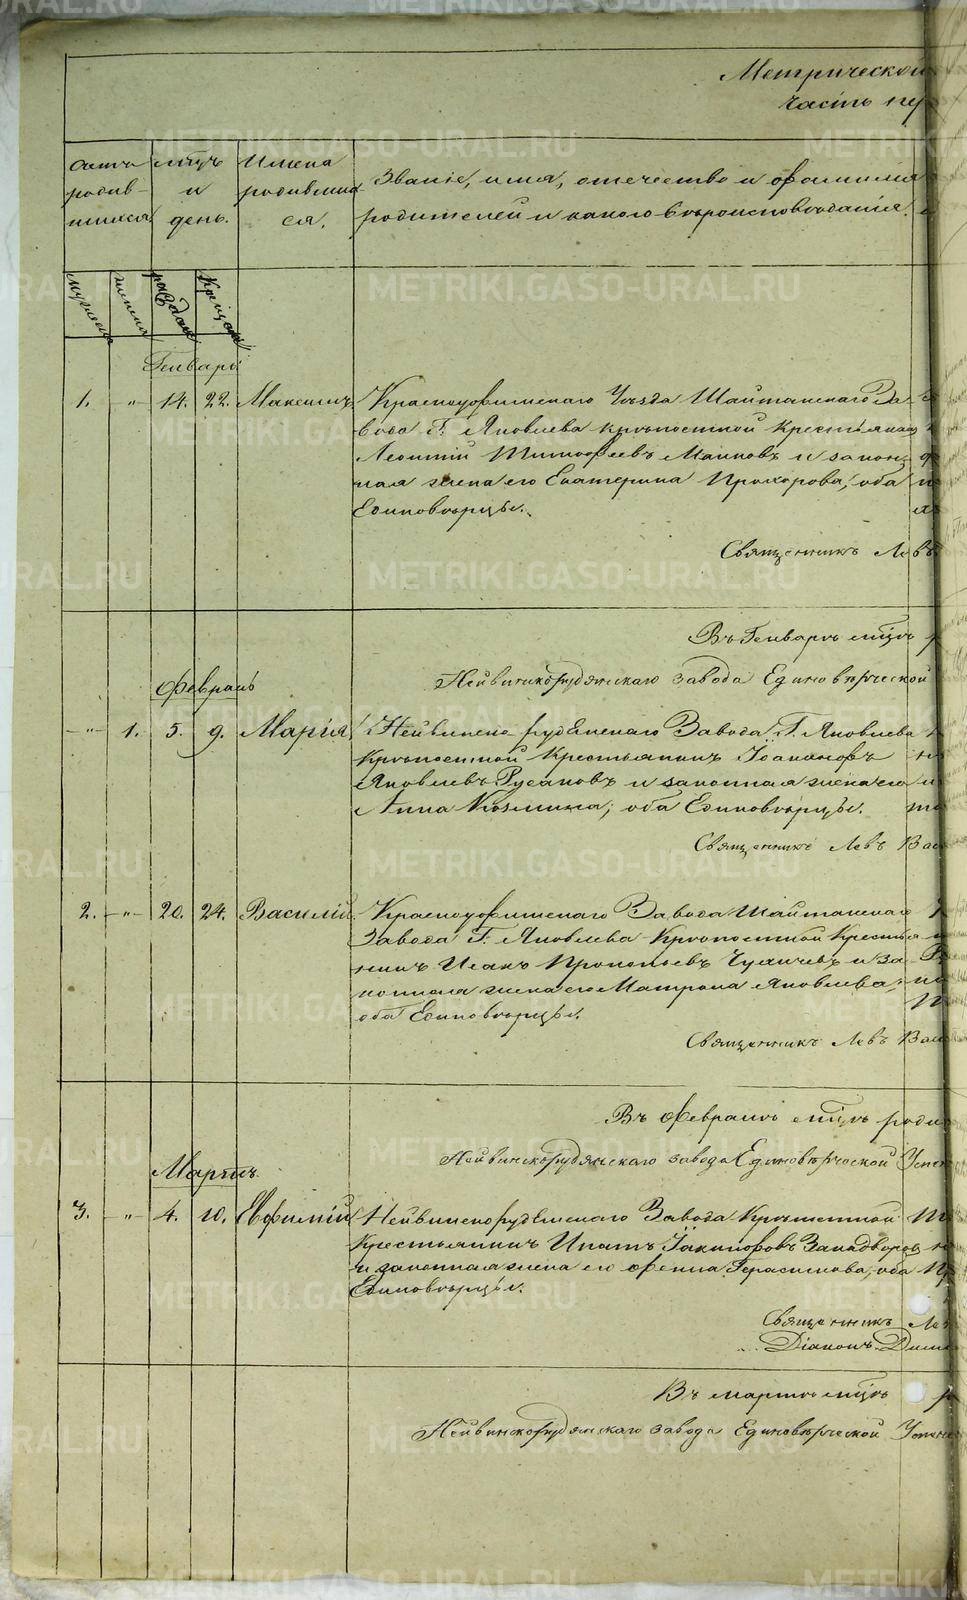 Метрической
часть пер
Счетъ родив-
шихся
мѣцъ
и
день.
Имена
родивших
ся.
Званіе, имя, отчество и фамилія
родителей и какого вѣроисповѣданія.
мужска
женска
рожденія
крещенія
Генварь
1. „ 14. 22. Максимъ
Красноуфимскаго Уѣзда Шайтанскаго За-
вода Г. Яковлева крѣпостной крестьянинъ
Леонтій Тимофеевъ и закон-
ная жена его Екатерина Прохорова, оба
Единовѣрцы.
Священникъ Левъ
Въ Генварѣ мѣцѣ
Нейвинскорудянскаго завода Единовѣрческой
Февраль
„ 1. 5. 9. Марія
Нейвинско рудянскаго Завода Г. Яковлева
крѣпостной Крестьянинъ Іоаннофъ
Яковлевъ Русановъ и законная жена его
Анна Козмина; оба Единовѣрцы.
Священникъ Левъ Вас
2. „ 20. 24. Василій
Красноуфимскаго Завода Шайтанскаго
Завода Г. Яковлева Крѣпостной Кресть
нинъ Исакъ Прокопьевъ и за-
конная жена его Матрона Яковлева;
оба Единовѣрцы.
Священникъ Левъ Вас
Въ Февралѣ мѣцѣ роди
Нейвинскорудянскаго завода Единовѣрческой Успен
Мартъ
3. „ 4. 10. Евфимій
Нейвинскорудянскаго Завода Крѣпостной
Крестьянинъ Ипатъ Западворов
и законная жена его Герасимова, оба
Единовѣрцы.
Священникъ Ле
Діаконъ
Въ мартѣ мѣцѣ р
Нейвинскорудянскаго завода Единовѣрческой Успен
METRIKI.GASO-URAL.RU